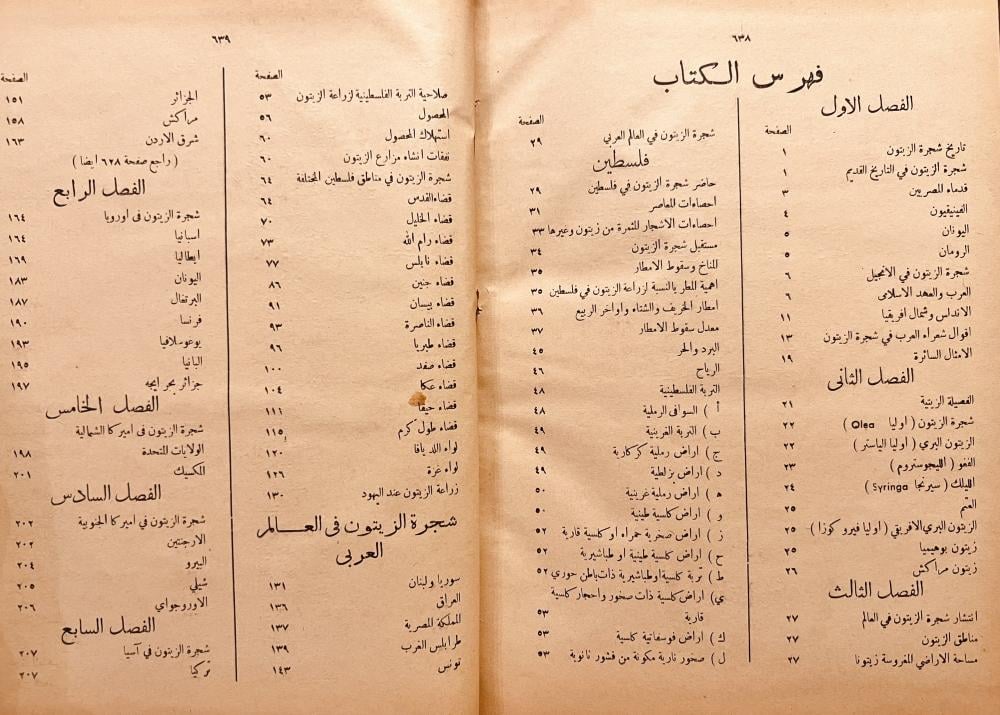 ٦٣٨
فهرس الكتاب
الفصل الاول
الصفحة
تاريخ شجرة الزيتون ١
شجرة الزيتون في التاريخ القديم ١
قدماء المصريين ٣
الفينيقيون ٤
اليونان ٥
الرومان ٥
شجرة الزيتون في الانجيل ٦
العرب والعهد الاسلامى ٦
الاندلس وشمال افريقيا ١١
اقوال شعراء العرب في شجرة الزيتون ١٣
الامثال السائرة ١٩
الفصل الثانى
الفصيلة الزيتية ٢١
شجرة الزيتون ( اوليا Olea ) ٢٢
الزيتون البري ( اوليا الياستر ) ٢٢
الففو ( الليجوستروم ) ٢٣
الليلك ( سيرنجا Syringa ) ٢٤
العتم ٢٥
الزيتون البري الافريقي ( اوليا فيرو كوزا ) ٢٥
زيتون بوهيميا ٢٥
زيتون مراكش ٢٦
الفصل الثالث
انتشار شجرة الزيتون في العالم ٢٧
مناطق الزيتون ٢٧
مساحة الاراضي المغروسة زيتونا ٢٧
الصفحة
شجرة الزيتون في العالم العربي ٢٩
فلسطين
حاضر شجرة الزيتون في فلسطين ٢٩
احصاءات المعاصر ٣١
احصاءات الاشجار المثمرة من زيتون وغيرها ٣٣
مستقبل شجرة الزيتون ٣٤
المناخ وسقوط الامطار ٣٥
اهمية المطر بالنسبة لزراعة الزيتون في فلسطين ٣٥
امطار الخريف والشتاء واواخر الربيع ٣٦
معدل سقوط الامطار ٣٧
البرد والحر ٤٥
الرياح ٤٦
التربة الفلسطينية ٤٨
أ ) السوافى الرملية ٤٨
ب ) التربة الغرينية ٤٩
ج ) اراض رملية كركارية ٤٩
د ) اراض بزلطية ٤٩
ه ) اراض رملية غرينية ٥٠
و ) اراض كلسية طينية ٥٠
ز ) اراض صخرية حمراء او كلسية قارية ٥٢
ح ) اراض كلسية طينية او طباشيرية ٥٢
ط ) تربة كلسية او طباشيرية ذات باطن حوري ٥٢
ي ) اراض كلسية ذات صخور واحجار كلسية
قارية ٥٣
ك ) اراض فوسفاتية كلسية ٥٣
ل ) صخور نارية مكونة من قشور ثانوية ٥٣
٦٣٩
الصفحة
صلاحية التربة الفلسطينية لزراعة الزيتون ٥٣
المحصول ٥٦
استهلاك المحصول ٦٠
نفقات انشاء مزارع الزيتون ٦٠
شجرة الزيتون في مناطق فلسطين المختلفة ٦٤
قضاء القدس ٦٤
قضاء الخليل ٧٠
قضاء رام الله ٧٣
قضاء نابلس ٧٧
قضاء جنين ٨٦
قضاء بيسان ٩١
قضاء الناصرة ٩٣
قضاء طبريا ٩٦
قضاء صفد ١٠٠
قضاء عكا ١٠٤
قضاء حيفا ١١١
قضاء طول كرم ١١٥
لواء اللد يافا ١٢٠
لواء غزة ١٢٦
زراعة الزيتون عند اليهود ١٣٠
شجرة الزيتون فى العالم
العربى
سوريا ولبنان ١٣١
العراق ١٣٦
المملكة المصرية ١٣٧
طرابلس الغرب ١٣٩
تونس ١٤٣
الصفحة
الجزائر ١٥١
مراكش ١٥٨
شرق الاردن ١٦٣
( راجع صفحة ٦٢٨ ايضا )
الفصل الرابع
شجرة الزيتون فى اوروبا ١٦٤
اسبانيا ١٦٤
ايطاليا ١٦٩
اليونان ١٨٣
البرتغال ١٨٧
فرنسا ١٩٠
يوغوسلافيا ١٩٣
البانيا ١٩٥
جزائر بحر ايجه ١٩٧
الفصل الخامس
شجرة الزيتون فى اميركا الشمالية
الولايات المتحدة ١٩٨
المكسيك ٢٠١
الفصل السادس
شجرة الزيتون في اميركا الجنوبية ٢٠٢
الارجنتين ٢٠٢
البيرو ٢٠٤
شيلي ٢٠٥
الاوروجواي ٢٠٦
الفصل السابع
شجرة الزيتون في آسيا ٢٠٧
تركيا ٢٠٧